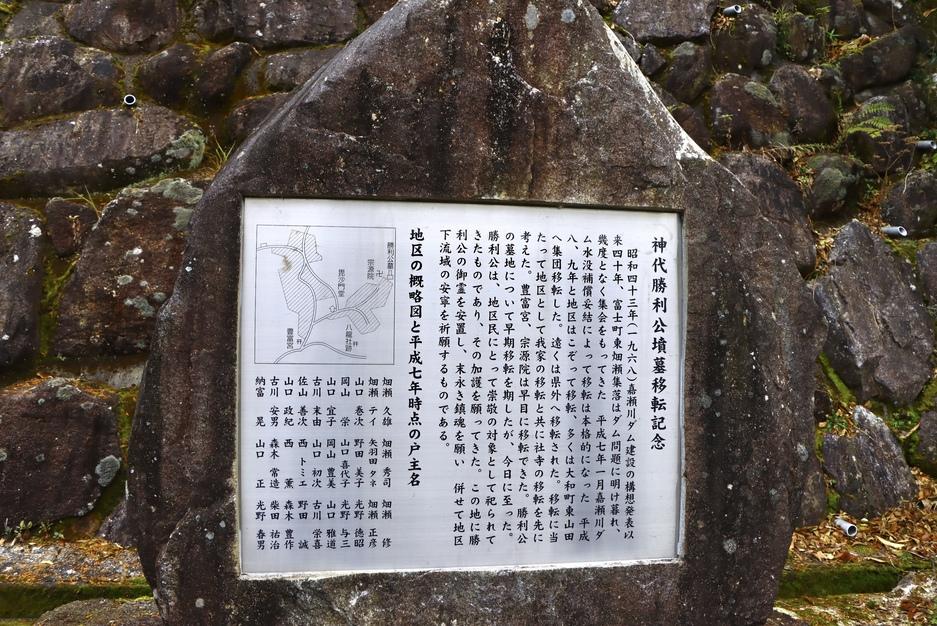 神代勝利公墳墓移転記念
昭和四十三年(一九六八)嘉瀬川ダム建設の構想発表以
来四十年、富士町東畑瀬集落はダム問題に明け暮れ、
幾度となく集会をもってきた 平成七年一月嘉瀬川ダ
ム水没補償妥結によって移転は本格的になった 平成
八、九年と地区はこぞって移転、多くは大和町東山田
へ集団移転した。遠くは県外へ移転された。移転に当
たって地区として我家の移転と共に社寺の移転を先に
考えた。豊富宮、宗源院は早目に移転できた。勝利公
の墓地について早期移転を期したが、今日に至った。
勝利公は、地区民にとって崇敬の対象として祀られて
きたものであり、その加護を願ってきた。この地に勝
利公の御霊を安置し、末永き鎮魂を願い 併せて地区
下流域の安寧を祈願するものである。
地区の概略図と平成七年時点の戸主名
勝利公墓
宗源院
毘沙門堂
八龍社跡
豊富宮
畑瀬 久雄 畑瀬 秀司 畑瀬 修
畑瀬 テイ 矢羽田タネ 畑瀬 正彦
山口 巻次 野田 美子 光野 徳昭
岡山 栄 山口喜代子 光野 与三
山口 宜子 岡山 豊美 山口 雅道
古川 末由 山口 初次 古川 栄喜
佐山 善次 西 トミエ 野田 誠
山口 政紀 西 薫 森木 豊作
古川 安男 森木 常造 柴田 祐治
納富 晃 山口 正 光野 春男